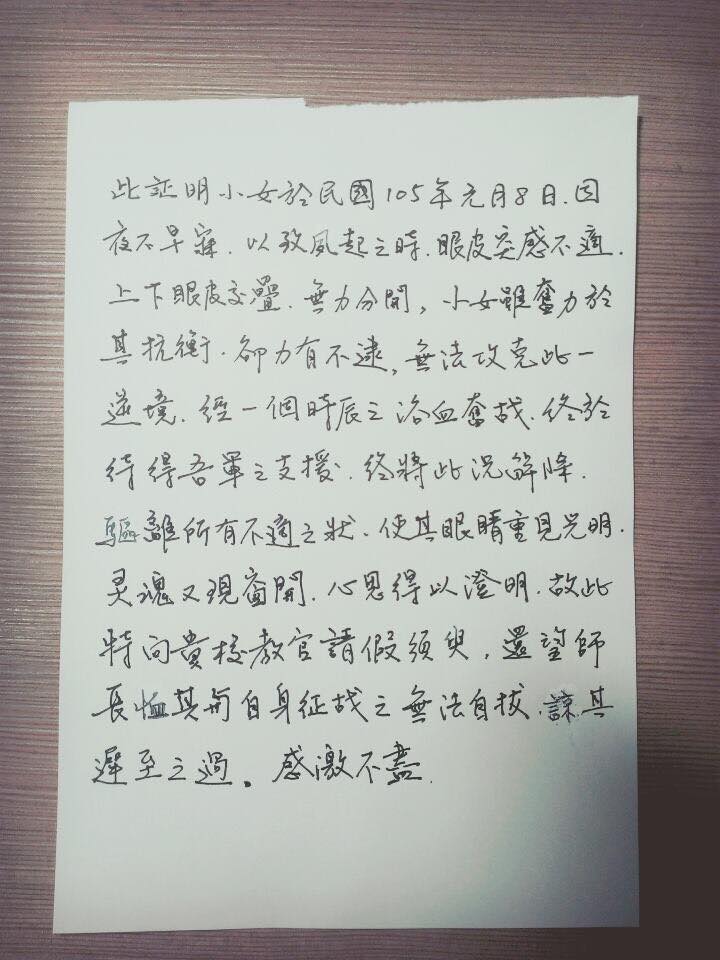 此証明小女於民國105年元月8日.因
夜不早寐.以致風起之時.眼皮突感不適.
上下眼皮交疊.無力分開,小女雖奮力於
其抗衡.卻力有不逮,無法攻克此一
逆境.經一個時辰之浴血奮战.終於
待得吾軍之支援.終將此況解降.
驅離所有不適之狀.使其眼睛重見光明.
灵魂又現窗開.心思得以澄明.故此
特向貴校教官請假須臾,還望師
長恤其甭自身征战之無法自拔.諒其
遲至之過。感激不盡.